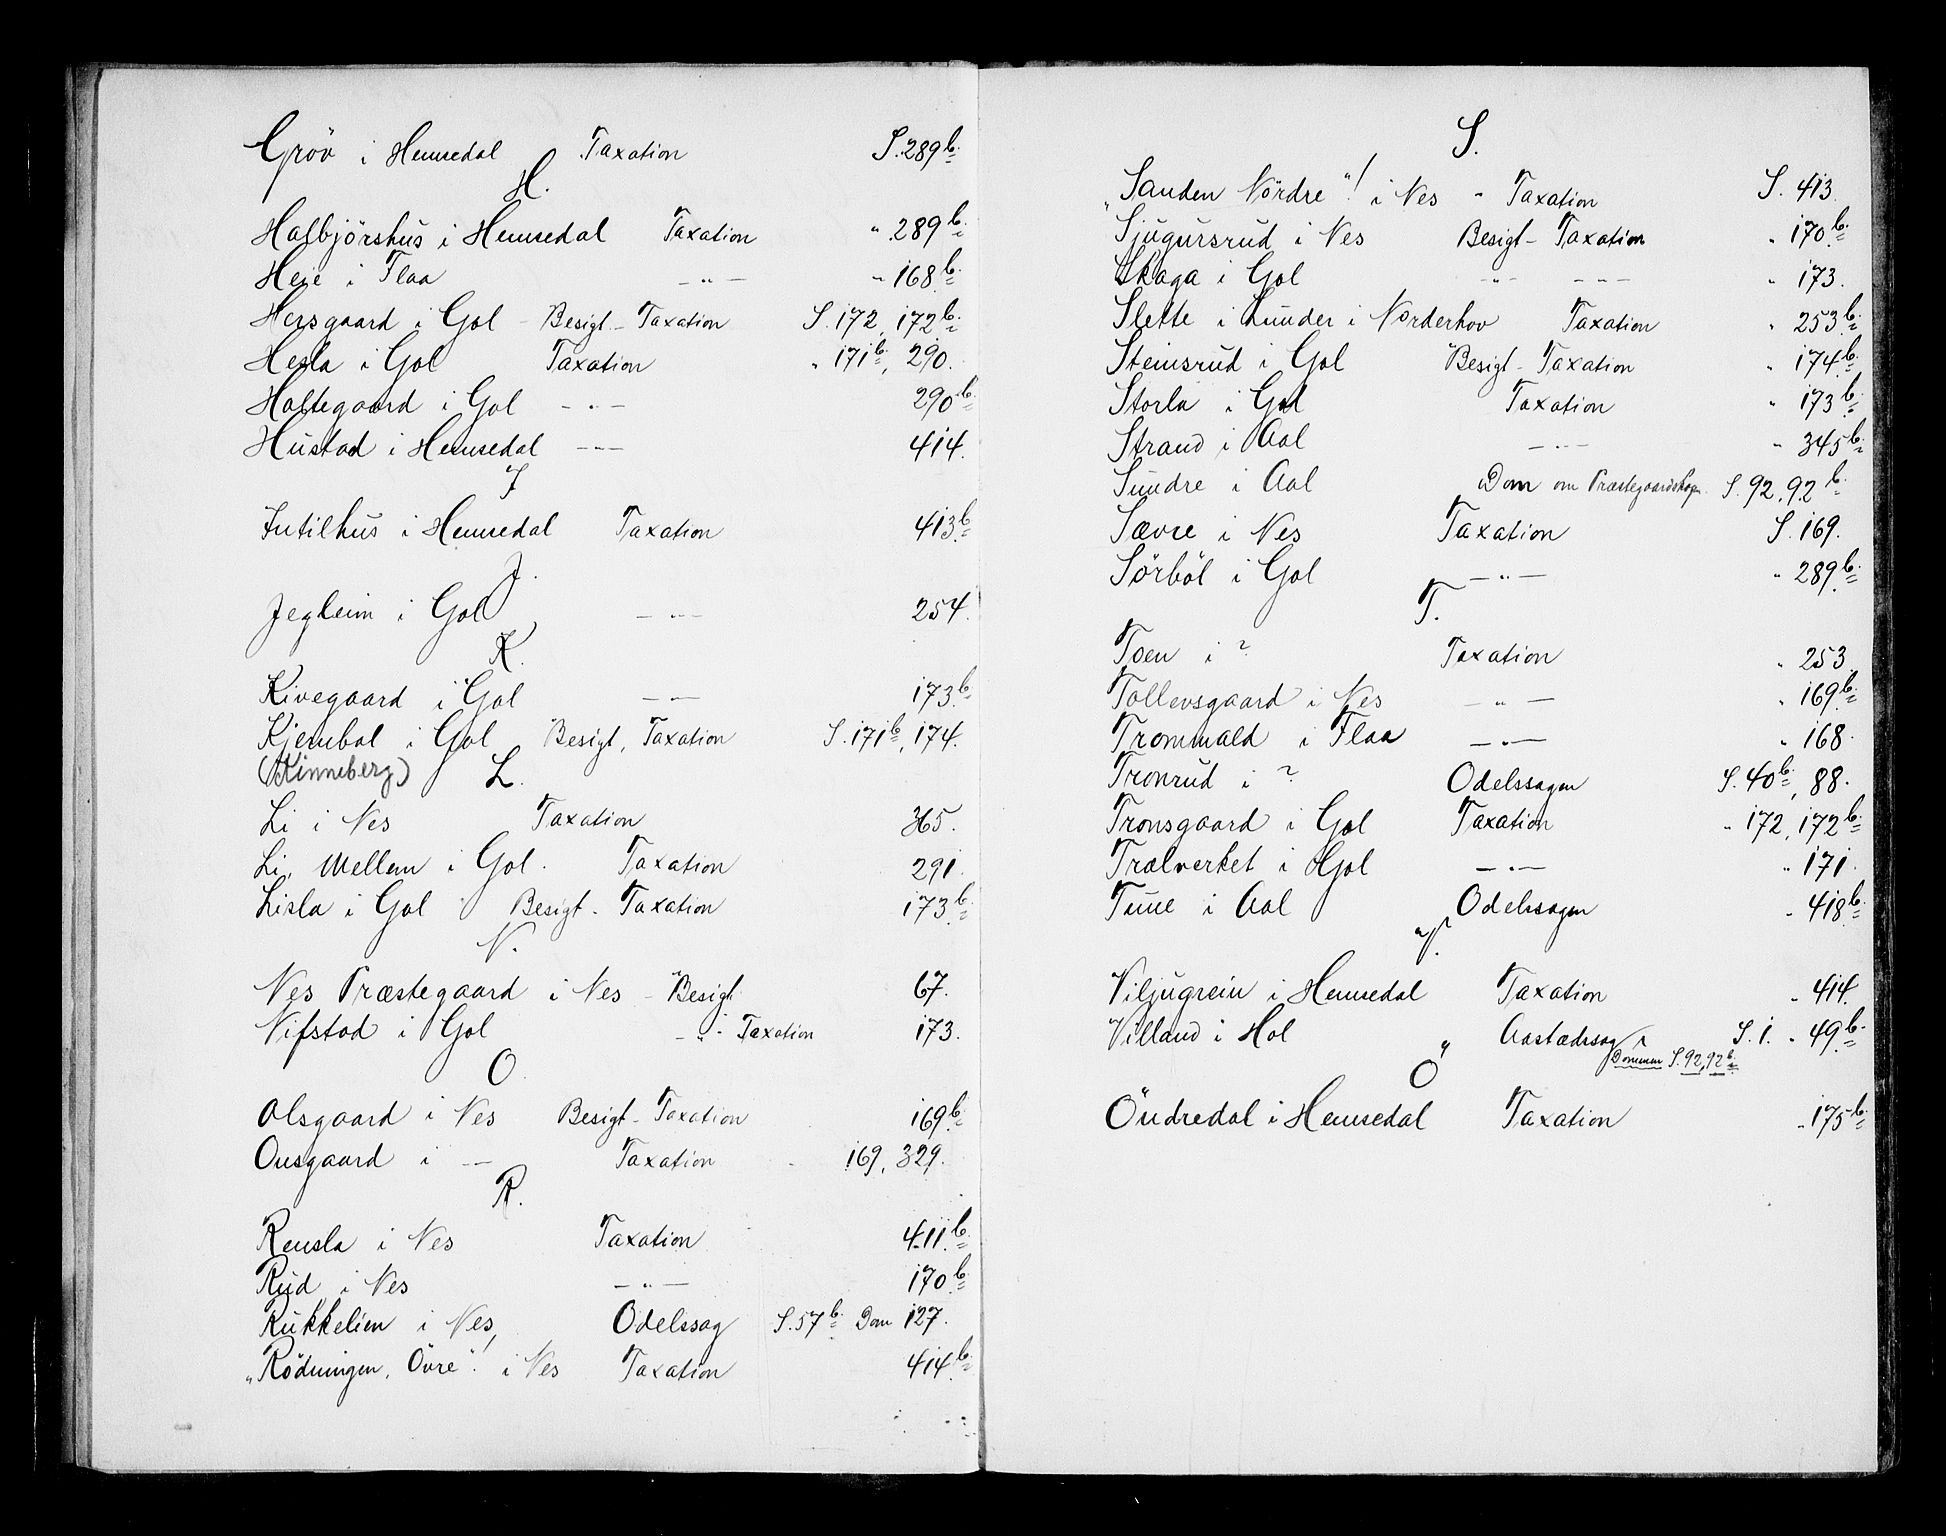 Gröv i Hemsedal Taxation S. 289 b.
H.
Halbjörshus i Hemsedal Taxation „ 289 b.
Heie i Flaa — „ — „ 168 b.
Hersgaard i Gol - Besigt - Taxation S. 172, 172 b.
Hesla i Gol Taxation „ 171 b., 290.
Holtegaard i Gol — „ — 290 b.
Hustad i Hemsedal — „ — 414.
I
Intilhus i Hemsedal Taxation 413 b.
J.
Jegleim i Gol — „ — 254.
K.
Kivegaard i Gol — „ — 173 b.
Kjembol i Gol Besigt, Taxation S. 171 b., 174.
(Kinneberg)
L.
Li i Nes Taxation 365.
Li, Mellem i Gol. Taxation 291.
Lisla i Gol Besigt. Taxation 173 b.
N.
Nes Præstegaard i Nes - Besigt 67.
Nifstad i Gol - „ - Taxation 173.
O
Olsgaard i Nes Besigt - Taxation 169 b.
Onsgaard i — Taxation 169, 329.
R.
Rensla i Nes Taxation 411 b.
Rud i Nes — „ — 170 b.
Rukkelien i Nes Odelssag S. 57 b. Dom 127.
„Rödningen, Övre"! i Nes Taxation 414 b.
S.
„Sanden Nördre"! i Nes - Taxation S. 413.
Sjugursrud i Nes Besigt - Taxation „ 170 b.
Skaga i Gol - „ - - „ - „ 173.
Slette i Lunder i Norderhov Taxation „ 253 b.
Steinsrud i Gol Besigt - Taxation „ 174 b.
Storla i Gol Taxation „ 173 b.
Strand i Aal — „ — „ 345 b.
Sundre i Aal Dom om Præstegaardskogen S. 92, 92 b.
Sævre i Nes Taxation S. 169.
Sörböl i Gol — „ — „ 289 b.
T.
Toen i ? Taxation „ 253
Tollevsgaard i Nes — „ — „ 169 b.
Trommald i Flaa — „ — „ 168.
Tronrud i ? Odelssagen S. 40 b., 88.
Tronsgaard i Gol Taxation „ 172, 172 b.
Trælverket i Gol — „ — „ 171.
Tune i Aal Odelssagen „ 418 b.
V.
Viljugrein i Hemsedal Taxation „ 414.
Villand i Hol Aastædssag S. 1. „ 49 b.
Dommen S. 92, 92 b.
Ö
Öndredal i Hemsedal Taxation „ 175 b.